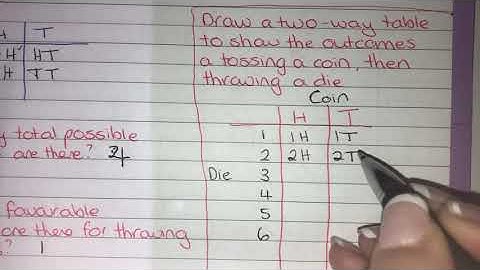 H T
H HT
H TT
y total possible
are there? 4
favarable
are there for throwing
? 1
Draw a two-way table
to show the outcomes
a tossing a coin, then
thrawing a die
Coin
H T
1 1H 1T
2 2H 2T
Die 3
4
5
6